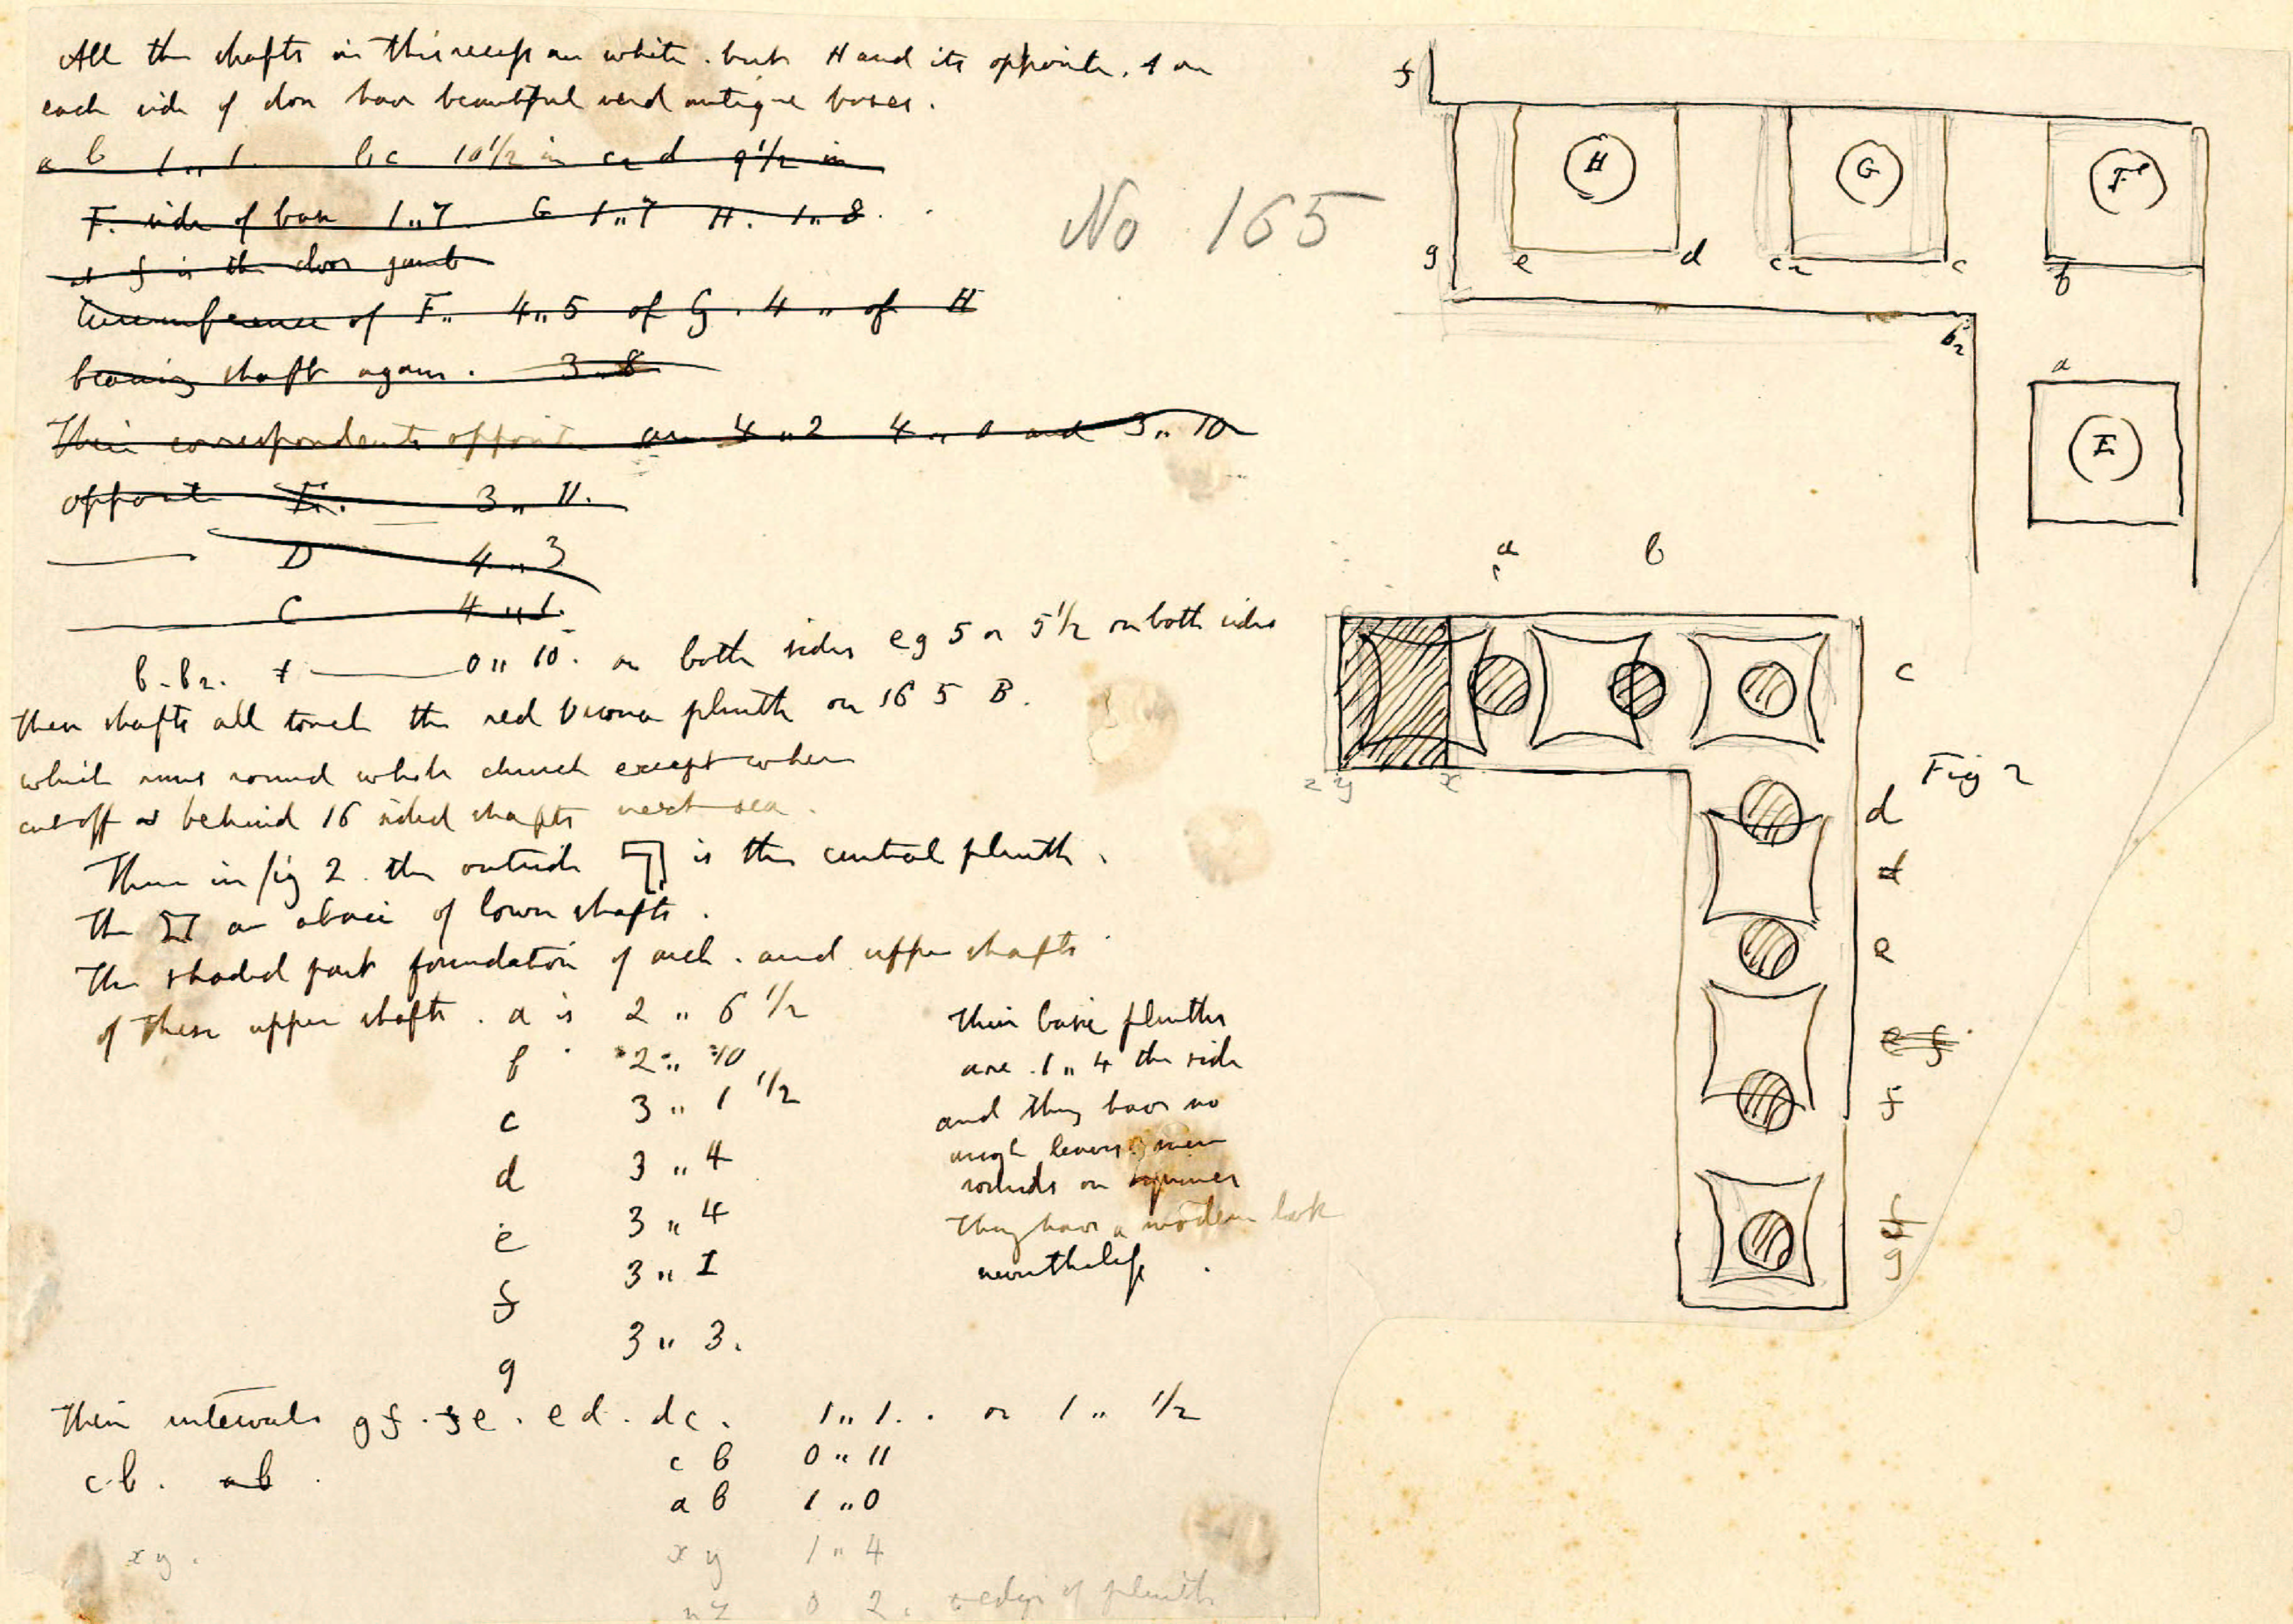 All the shafts in this recess are white. but H and its opposite, 1 on
each side of door have beautiful verd antique bases.
a b 1 " 1. b c 10 1/2 in c2 d 9 1/2 in
F. side of base 1 " 7 G 1 " 7 H. 1 " 8.
at f is the door jamb
Circumference of F " 4 " 5 of G. 4 " of H
bearing shaft again. 3 " 8
Their correspondents opposite are 4 " 2 4 " 0 and 3 " 10
opposite E. 3 " 11.
D 4 " 3
C 4 " 1.
b - b2. 0 " 10. on both sides e g 5 or 5 1/2 on both sides
These shafts all touch the red Verona plinth on 165 B.
which runs round whole church except when
cut off as behind 16 sided shafts next sea.
Then in fig 2. the outside is the central plinth.
The are abaci of lower shafts.
The shaded part foundation of arch. and upper shafts
of these upper shafts. a is 2 " 6 1/2
b 2 " 10
c 3 " 1 1/2
d 3 " 4
e 3 " 4
f 3 " 1
g 3 " 3.
Their base plinths
are 1 " 4 the side
and they have no
angle leaves: mere
rounds on squares
They have a modern look
nevertheless.
Their intervals g f. f e. e d. d c. 1 " 1. or 1 " 1/2
c b. a b. c b 0 " 11
a b 1 " 0
x y. x y 1 " 4
0 2. edge of plinth
No 165
f
H G F
g e d c2 c b
b2
a
E
a b
c
z y x
Fig 2
d
d
e
e f
f
f
g